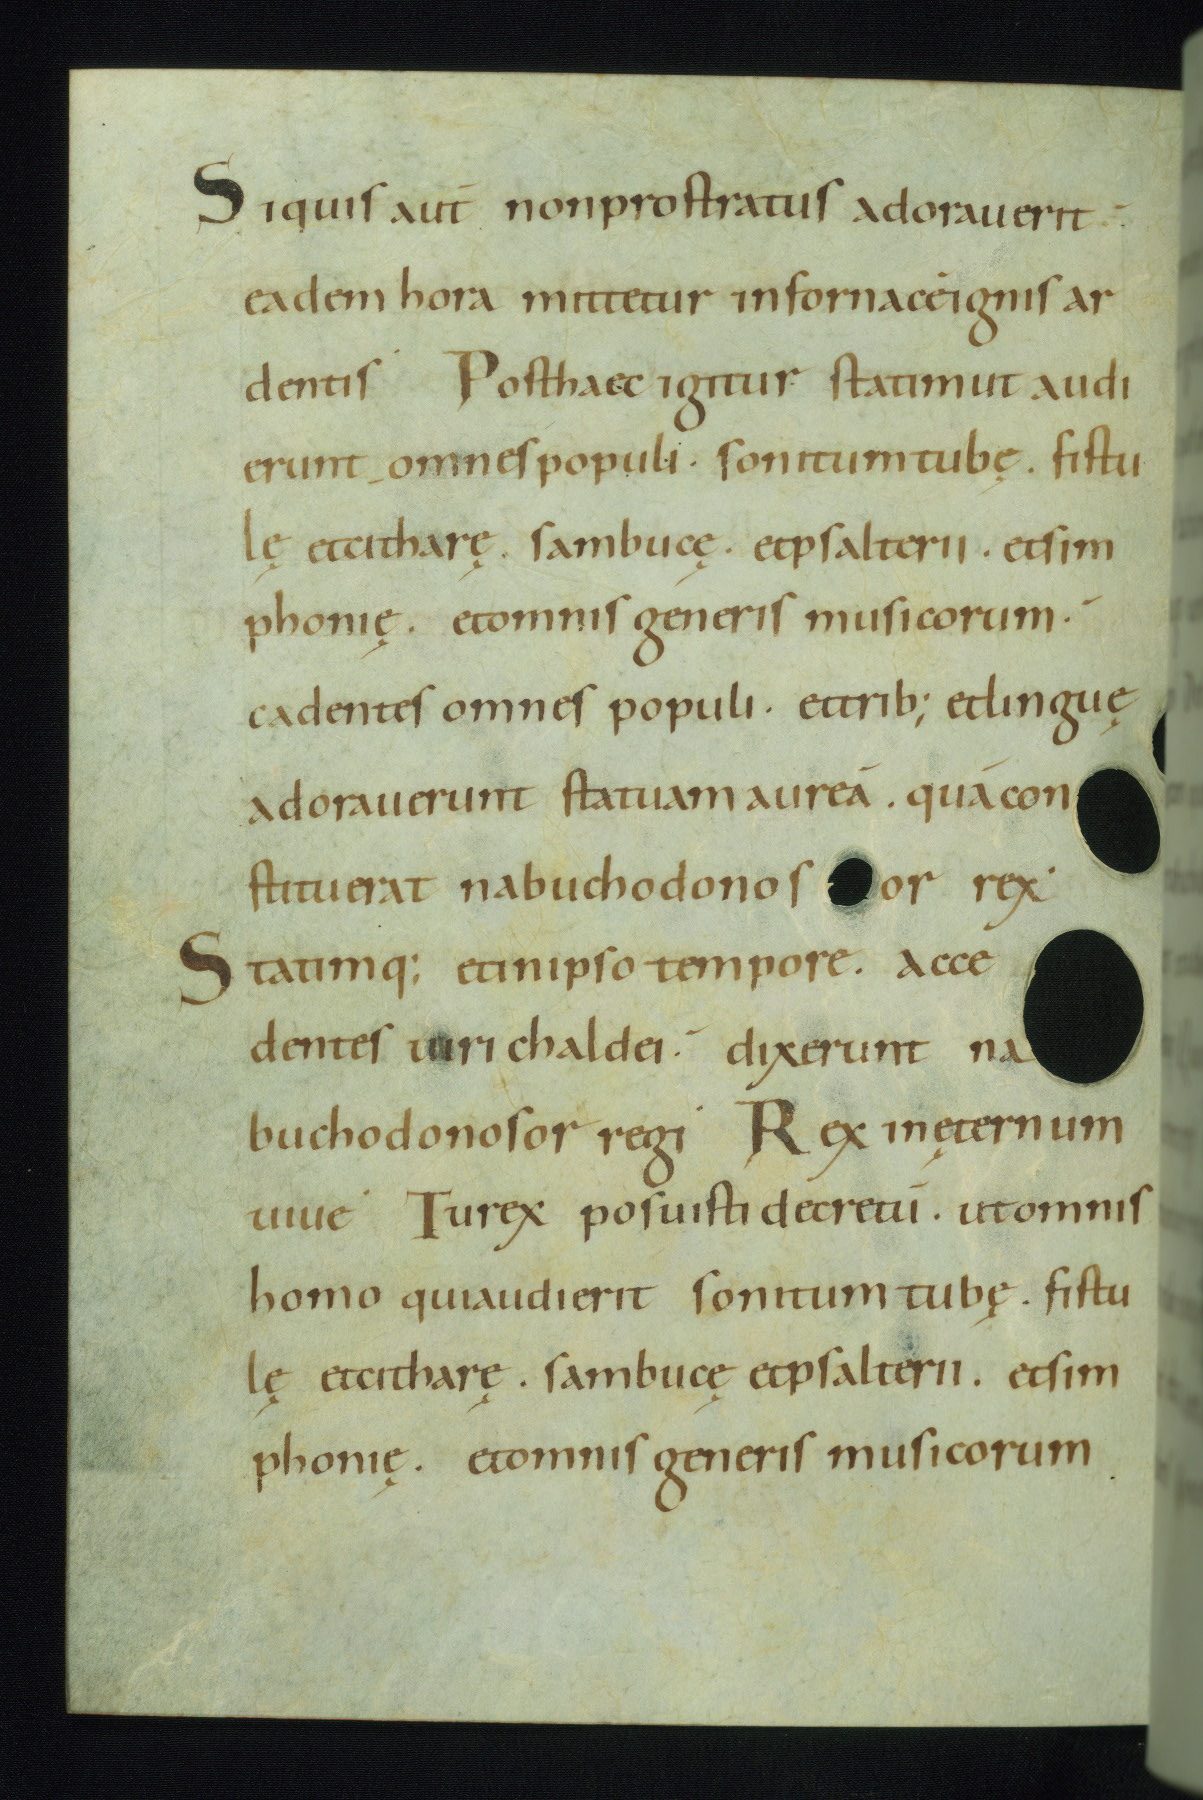 Siquis aut̄ nonprostratus adorauerit·
eadem hora mittetur infornacēignis ar
dentis· Posthaec igitur statimut audi
erunt omnespopuli· sonitumtubę. fistu
lę etcitharę. sambucę. etpsalterii. etsim
phonię. etomnis generis musicorum·
cadentes omnes populi. ettrib; etlinguę
adorauerunt statuam aureā. quācon
stituerat nabuchodonos or rex·
Statimq; etinipso tempore. acce
dentes uiri chaldei· dixerunt na
buchodonosor regi· Rex inęternum
uiue· Turex posuisti decretū. utomnis
homo quiaudierit sonitum tubę. fistu
lę etcitharę. sambucę etpsalterii. etsim
phonię. etomnis generis musicorum